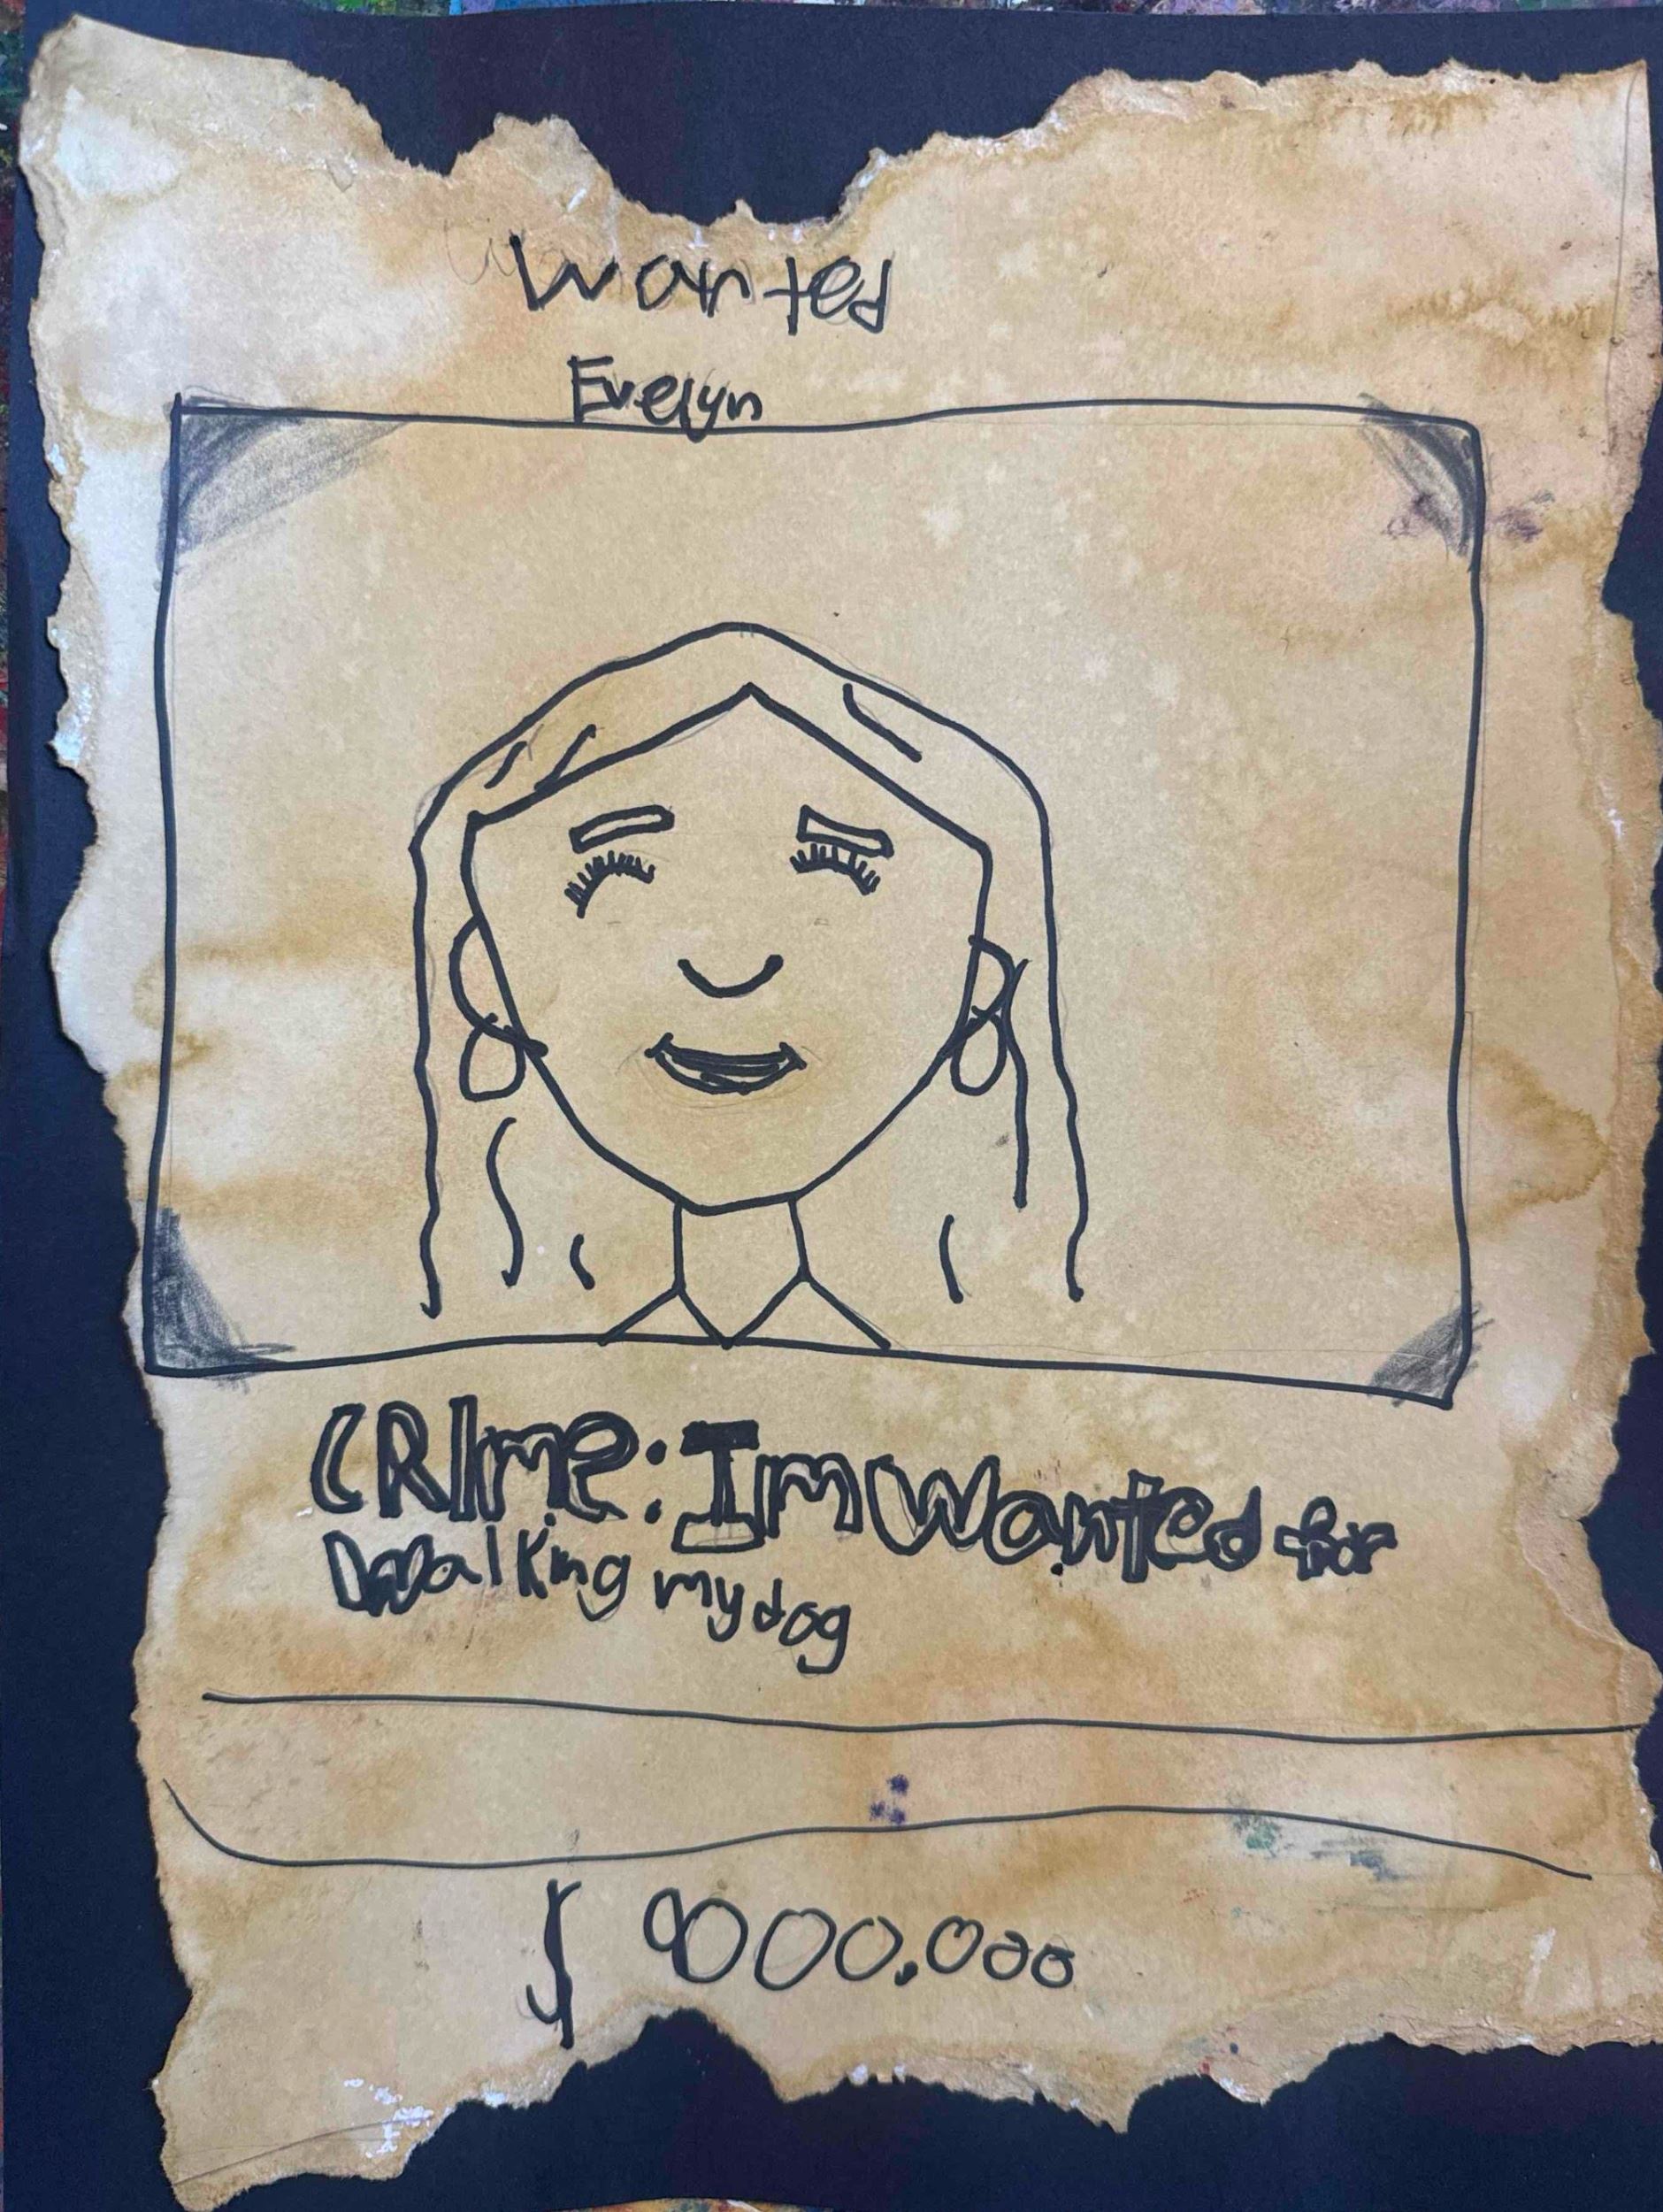 Wanted
Evelyn
CRIme: Im Wanted for
Walking my dog
$ 9000.000